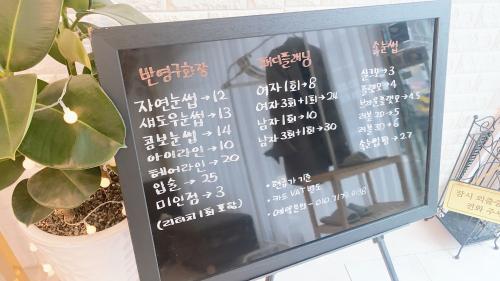 반영구화장
자연눈썹→12
섀도우눈썹→13
콤보눈썹→14
아이라인→10
헤어라인→20
입술→25
미인점→3
(리터치 1회 포함)
왁디플래닝
여자 1회→8
여자 3회+1회→24
남자 1회→10
남자 3회+1회→30
• 현금가 기준
• 카드 VAT 별도
• 예약문의
속눈썹
→3
→4
→4.5
→5
→6
→27
잠시 외출중
전화 주